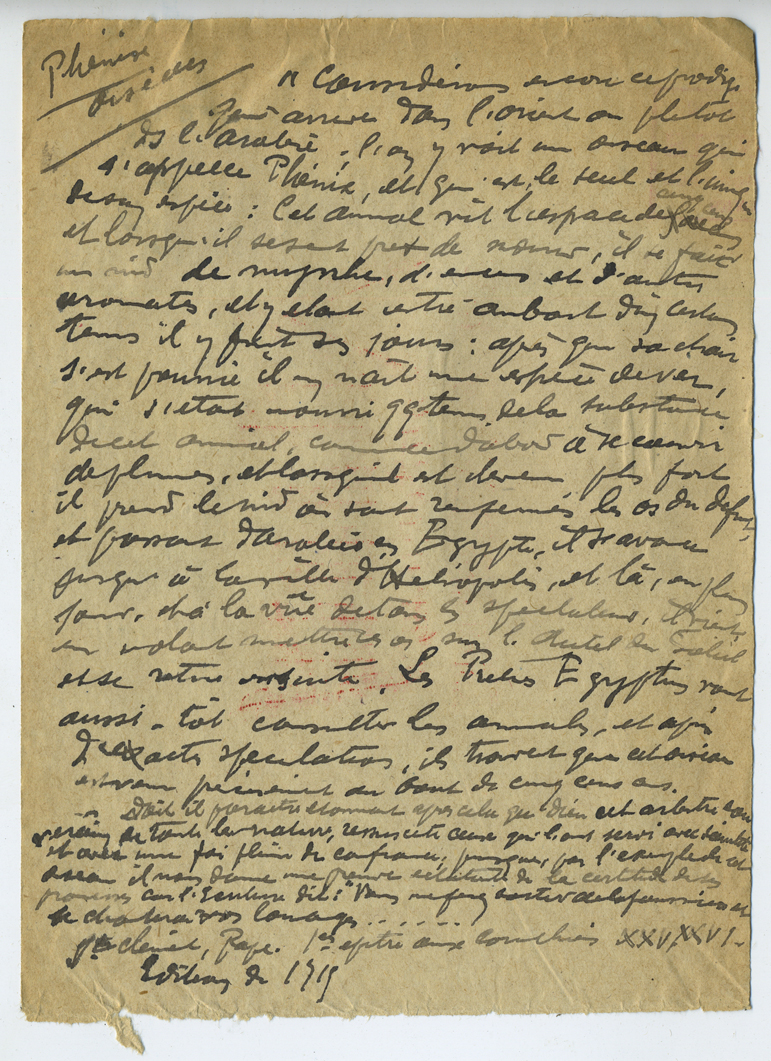 Phénix
oiseau
« Considérons encore ce prodige
qui arrive dans l'orient ou plutot
ds l'arabie ; l'on y voit un oiseau qui
s'appelle Phénix, et qui est le seul et l'unique
de son espèce : Cet animal vit l'espace de cinq cens
et lorsqu'il se sent pret de mourir, il se fait
un nid de myrrhe, d'encens et d'autres
aromates, et y etant entré au bout d'un certain
tems il y finit ses jours : après que sa chair
s'est pourrie il en naît une espèce de ver,
qui s'etant nourri qq tems de la substance
de cet animal, commence dabord à se couvrir
de plumes, et lorsqu'il est devenu pls fort
il prend le nid où sont renfermés les os du defunt,
et passant d'arabie en Egypte, il s'avance
jusqu'à la ville d'Heliopolis, et là, en plein
jour, et à la vüe de tous les spectateurs, il vient
en volant mettre ces os sur l'Autel du Soleil
et se retire ensuite. Les Pretres Egyptiens vont
aussi-tôt consulter les annales, et après
d'exactes speculations, ils trouvent que cet oiseau
est venu précisément au bout de cinq cens ans.
Doit il paraitre etonnant après cela que Dieu cet arbitre sou
verain de toute la nature, ressuscite ceux qui l'ont servi avec sainteté
et avec une foi pleine de confiance, puisque, par l'exemple de cet
oiseau il nous donne une preuve eclatante de la certitude de ses
promesses car l'Ecriture dit : " Vous me ferez sortir de la poussiere et
je chanterai vos louanges . . . . . . .
St clément, Pape. 1re epitre aux corinthiens XXV, XXVI -
Edition de 1719